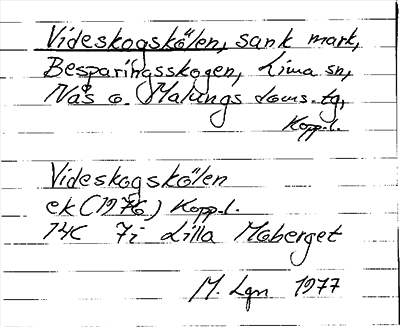 Videskogskölen, sank mark,
Besparingsskogen, Lima sn,
Nås o. Malungs doms. tg,
Kopp.l.
Videskogskölen
ek (1976) Kopp.l.
14C 7i Lilla Moberget
M. Lgn 1977